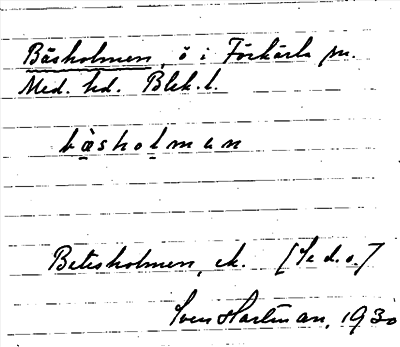 Bäsholmen, ö i Förkärla sn.
Med. hd. Blek. l.
bäsholmen
Betesholmen, ek. [Se d.o.]
Sven Hartman, 1930